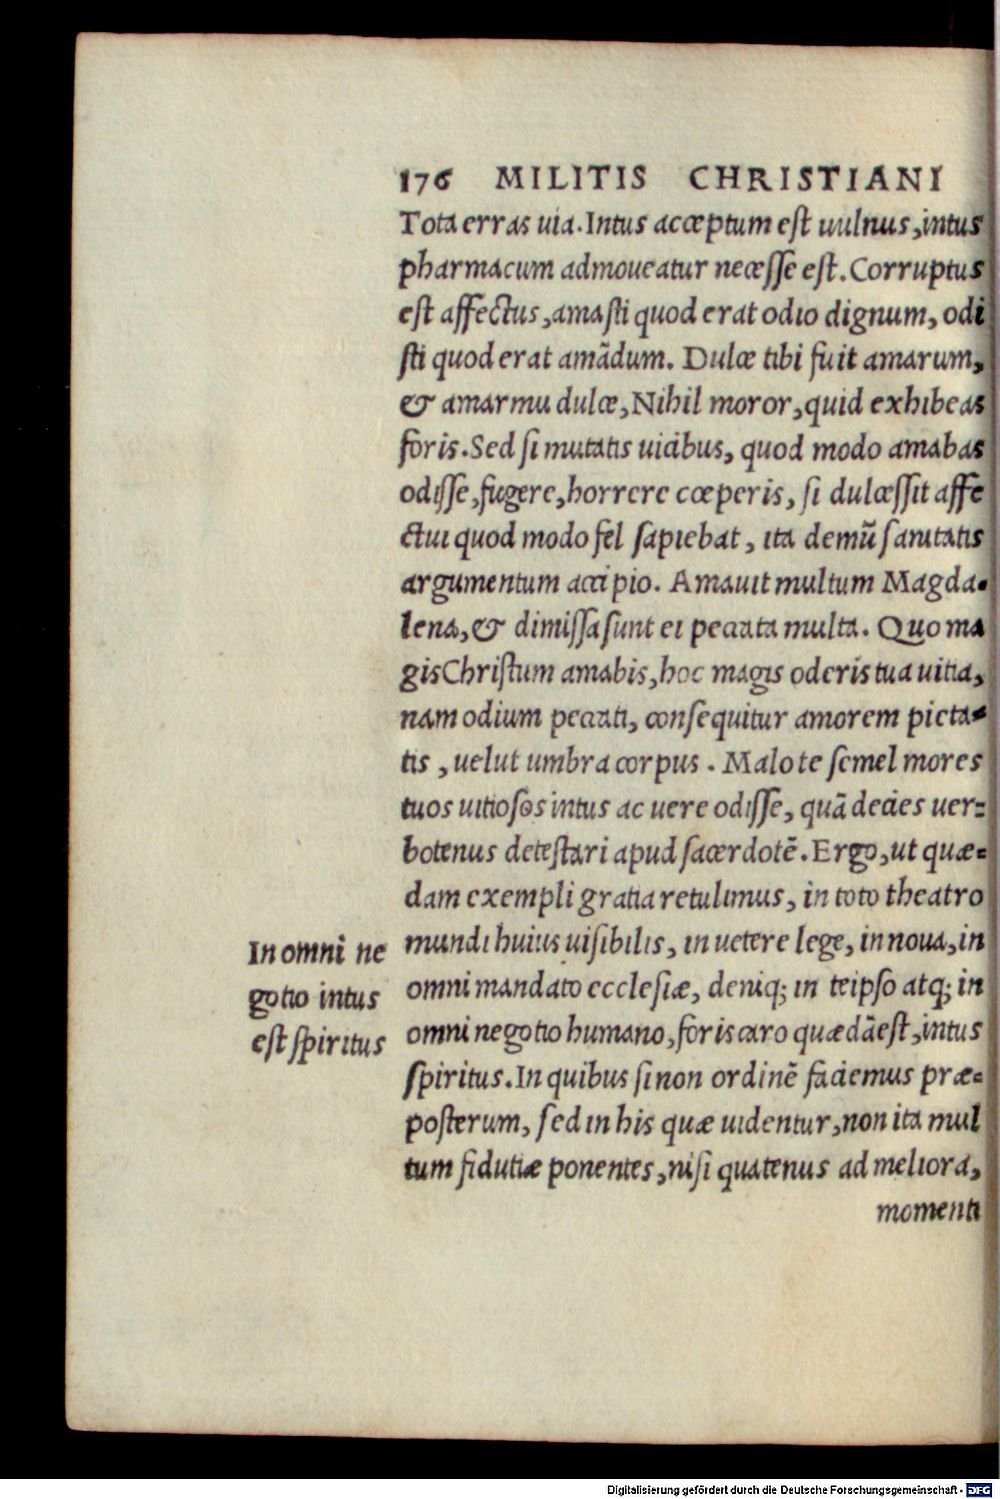 176 MILITIS CHRISTIANI
Tota erras uia. Intus acceptum est uulnus, intus
pharmacum admoueatur necesse est. Corruptus
est affectus, amasti quod erat odio dignum, odi
sti quod erat amādum. Dulce tibi fuit amarum,
& amarmu dulce, Nihil moror, quid exhibeas
foris. Sed si mutatis uicibus, quod modo amabas
odisse, fugere, horrere cœperis, si dulcessit affe
ctui quod modo fel sapiebat, ita demū sanitatis
argumentum accipio. Amauit multum Magda-
lena, & dimissa sunt ei peccata multa. Quo ma
gis Christum amabis, hoc magis oderis tua uitia,
nam odium peccati, consequitur amorem pieta-
tis, uelut umbra corpus. Malo te semel mores
tuos uitiosos intus ac uere odisse, quā decies uer=
botenus detestari apud sacerdotē. Ergo, ut quæ=
dam exempli gratia retulimus, in toto theatro
mundi huius uisibilis, in uetere lege, in noua, in
omni mandato ecclesiæ, deniq; in teipso atq; in
omni negotio humano, foris caro quædā est, intus
spiritus. In quibus si non ordinē faciemus præ=
posterum, sed in his quæ uidentur, non ita mul
tum fidutiæ ponentes, nisi quatenus ad meliora,
momenti
In omni ne
gotio intus
est spiritus
Digitalisierung gefördert durch die Deutsche Forschungsgemeinschaft - DFG